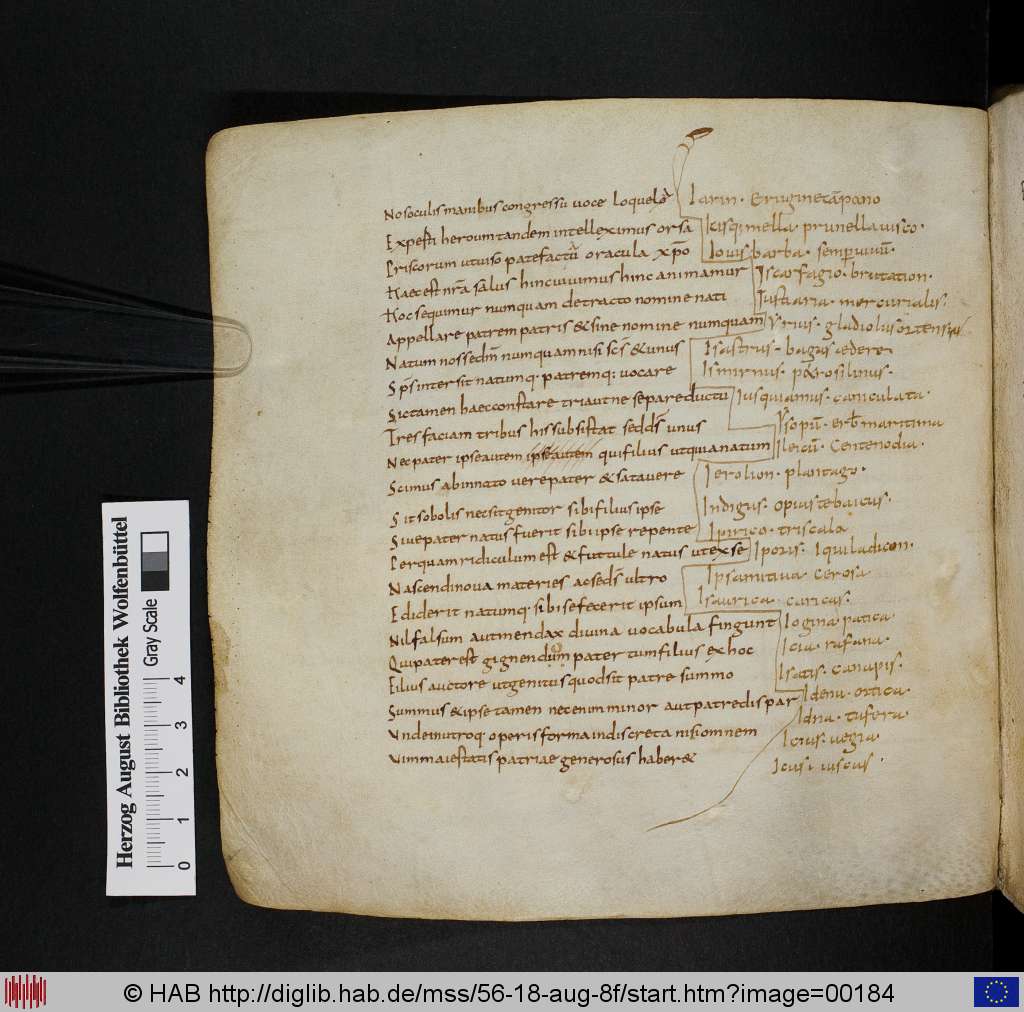 Nosoculis manibus congressu uoce loquela
Expesti heroum tandem intelleximus orsa
Priscorum utuiso patefactu oracula xp̄o
Haec est nr̄a salus hinc uiuimus hinc animamur
Hoc sequimur numquam detracto nomine nati
Appellare patrem patris & sine nomine numquam
Natum nossedm̄ numquam nisi sc̄s & unus
Sp̄s intersit natumq· patremq; uocare
Sic tamen haec constare tria ut ne separe ductu
Tres faciam tribus his subsistat sed ds̄ unus
Nec pater ipse autem ipse autem qui filius utqui a natum
Scimus abinnato uere pater & sata uere
Sit sobolis nec sit genitor sibi filius ipse
Siue pater natus fuerit sibi ipse repente
Perquam ridiculum est & futtule natus ut exse
Nascendi noua materies ac seds̄ ultro
Ediderit natumq· sibi se fecerit ipsum
Nil falsum aut mendax diuina uocabula fingunt
Qui pater est gignendum pater tum filius ex hoc
Filius auctore ut genitus quod sit patre summo
Summus & ipse tamen nec enim minor aut patre dispar
Unde inutroq· operis forma indiscreta nisi omnem
Uim maiestatis patriae generosus haber&
Iarin· Erugine cāpano
Kisqimella· prunella uisco·
Iouis barba· semp̄uiuū·
Iscarfagio· brutation·
Iustiaria· mercurialis·
Yrius· gladiolus ortensis
Isastrus· bagas edere
Ismirnus· ros linus·
Iusquiamus· caniculata·
Ysopū· erb̄ maritima
Ileicū· Centenodia·
Ierolion· plantago·
Indigus· opius tebaicus·
Ipirico· triscala
Iporis· Iquiladicon·
Ipsanitiua· cerosa
Isaurica· caricas·
Iogina patica·
Icia· rafana·
Isatis· canapis·
Idenu· ortica·
Idna· tufera·
Icius· uegia·
Icus· iuscus·
Herzog August Bibliothek Wolfenbüttel
Gray Scale
0 1 2 3 4
© HAB http://diglib.hab.de/mss/56-18-aug-8f/start.htm?image=00184